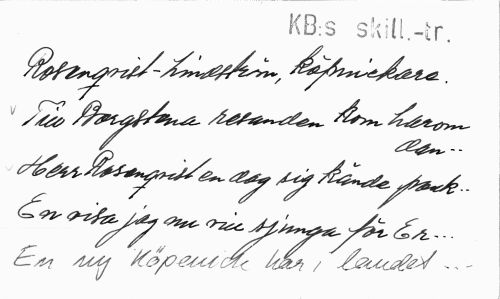 KB:s skill.-tr.
Rosenqvist-Lindström, köpenickare.
Till Borgstena resanden kom härom
den--
Herr Rosenqvist en dag sig kände pank..
En visa jag nu vill sjunga för Er...
En ny Köpenick har i landet ...